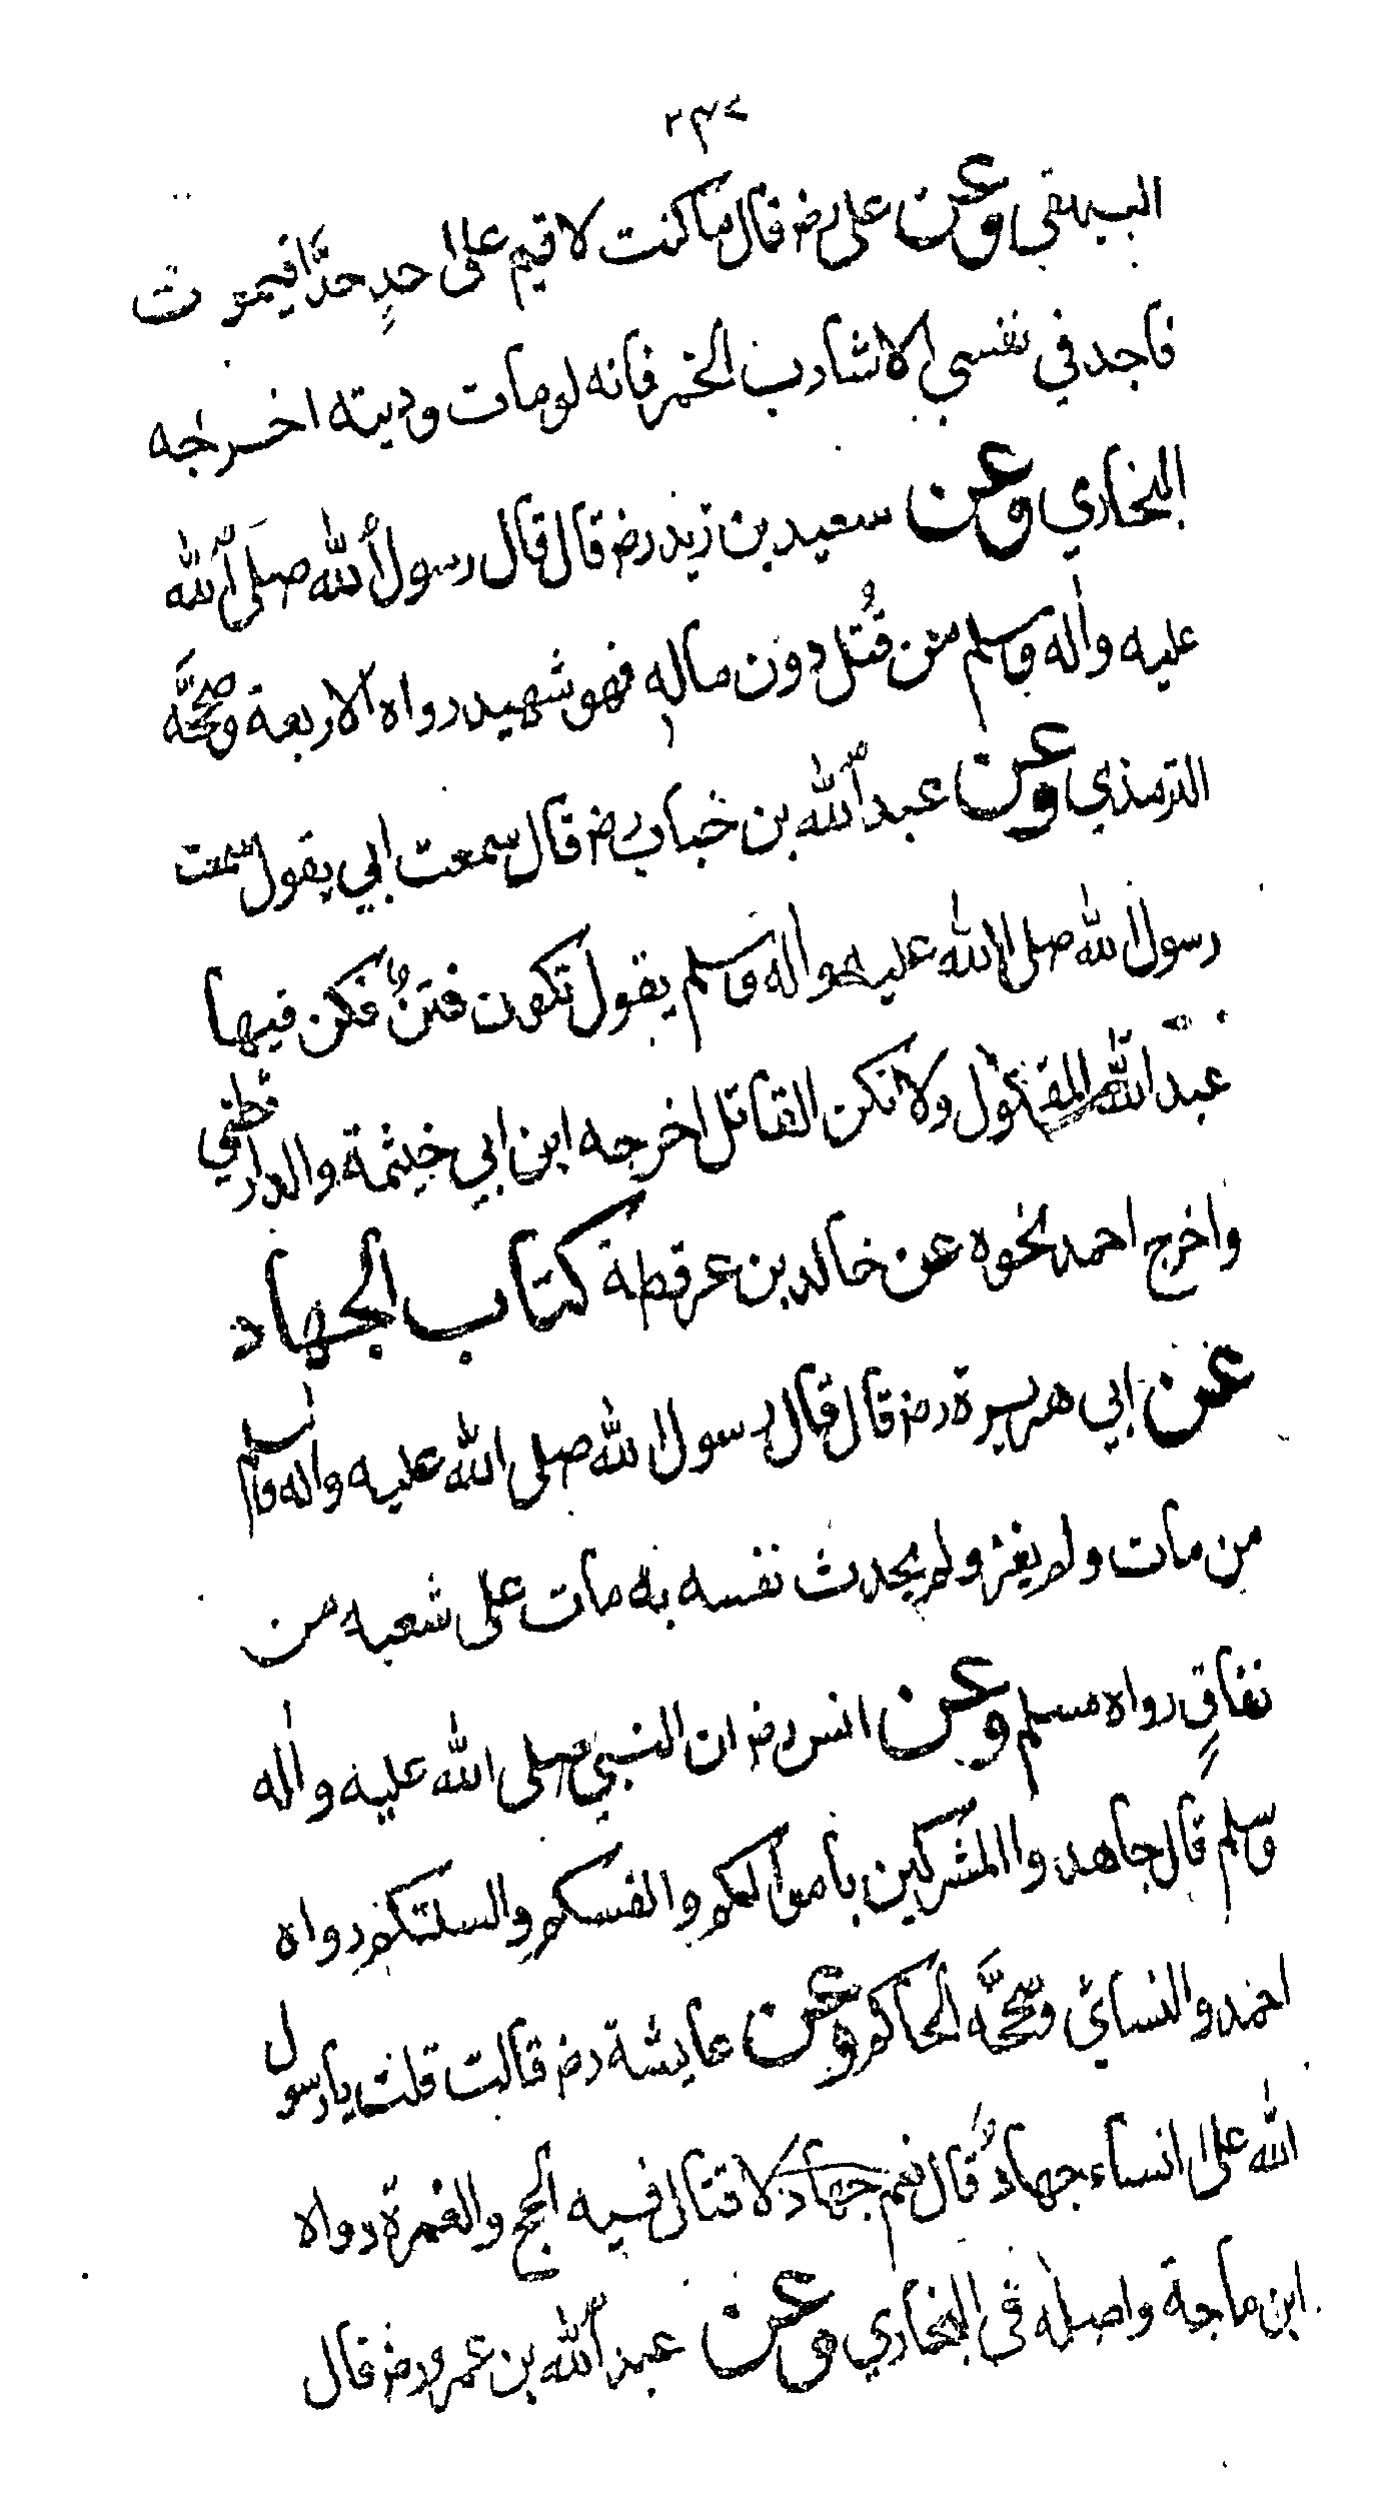 ٢٣٧
البيهقي وعن على رض قال ما كنت لاقيم على احدٍ حدًّا فيموت
فاجد في نفسي الا شارب الخمر فانه لو مات وديته اخرجه
البخاري وعن سعيد بن زيد رض قال قال رسول الله صلى الله
عليه واله وسلم من قُتل دون ماله فهو شهيد رواه الاربعة وصححَّه
الترمذي وعن عبد الله بن خباب رض قال سمعت ابي يقول سمعت
رسول الله صلى الله عليه واله وسلم يقول تكون فتنٌ فكن فيها
عبد الله المقتول ولا تكن القاتل اخرجه ابن ابي خيثمة والدارقطني
واخرج احمد نحوه عن خالد بن عرفطة كتاب الجهاد
عن ابي هريرة رض قال قال رسول الله صلى الله عليه واله وسلم
من مات ولم يغز ولم يحدث نفسه به مات على شعبه من
نفاقٍ رواه مسلم وعن انس رض ان النبي صلى الله عليه واله
وسلم قال جاهدوا المشركين باموالكم وانفسكم والسنتكم رواه
احمد والنسائي وصححَّه الحاكم وعن عايشة رض قالت قلت يا رسول
الله على انساء جهادٌ قال نعم جهاد لا قتال فيه الحج والعمرة رواه
ابن ماجة واصله في البخاري وعن عبد الله بن عمرو رض قال